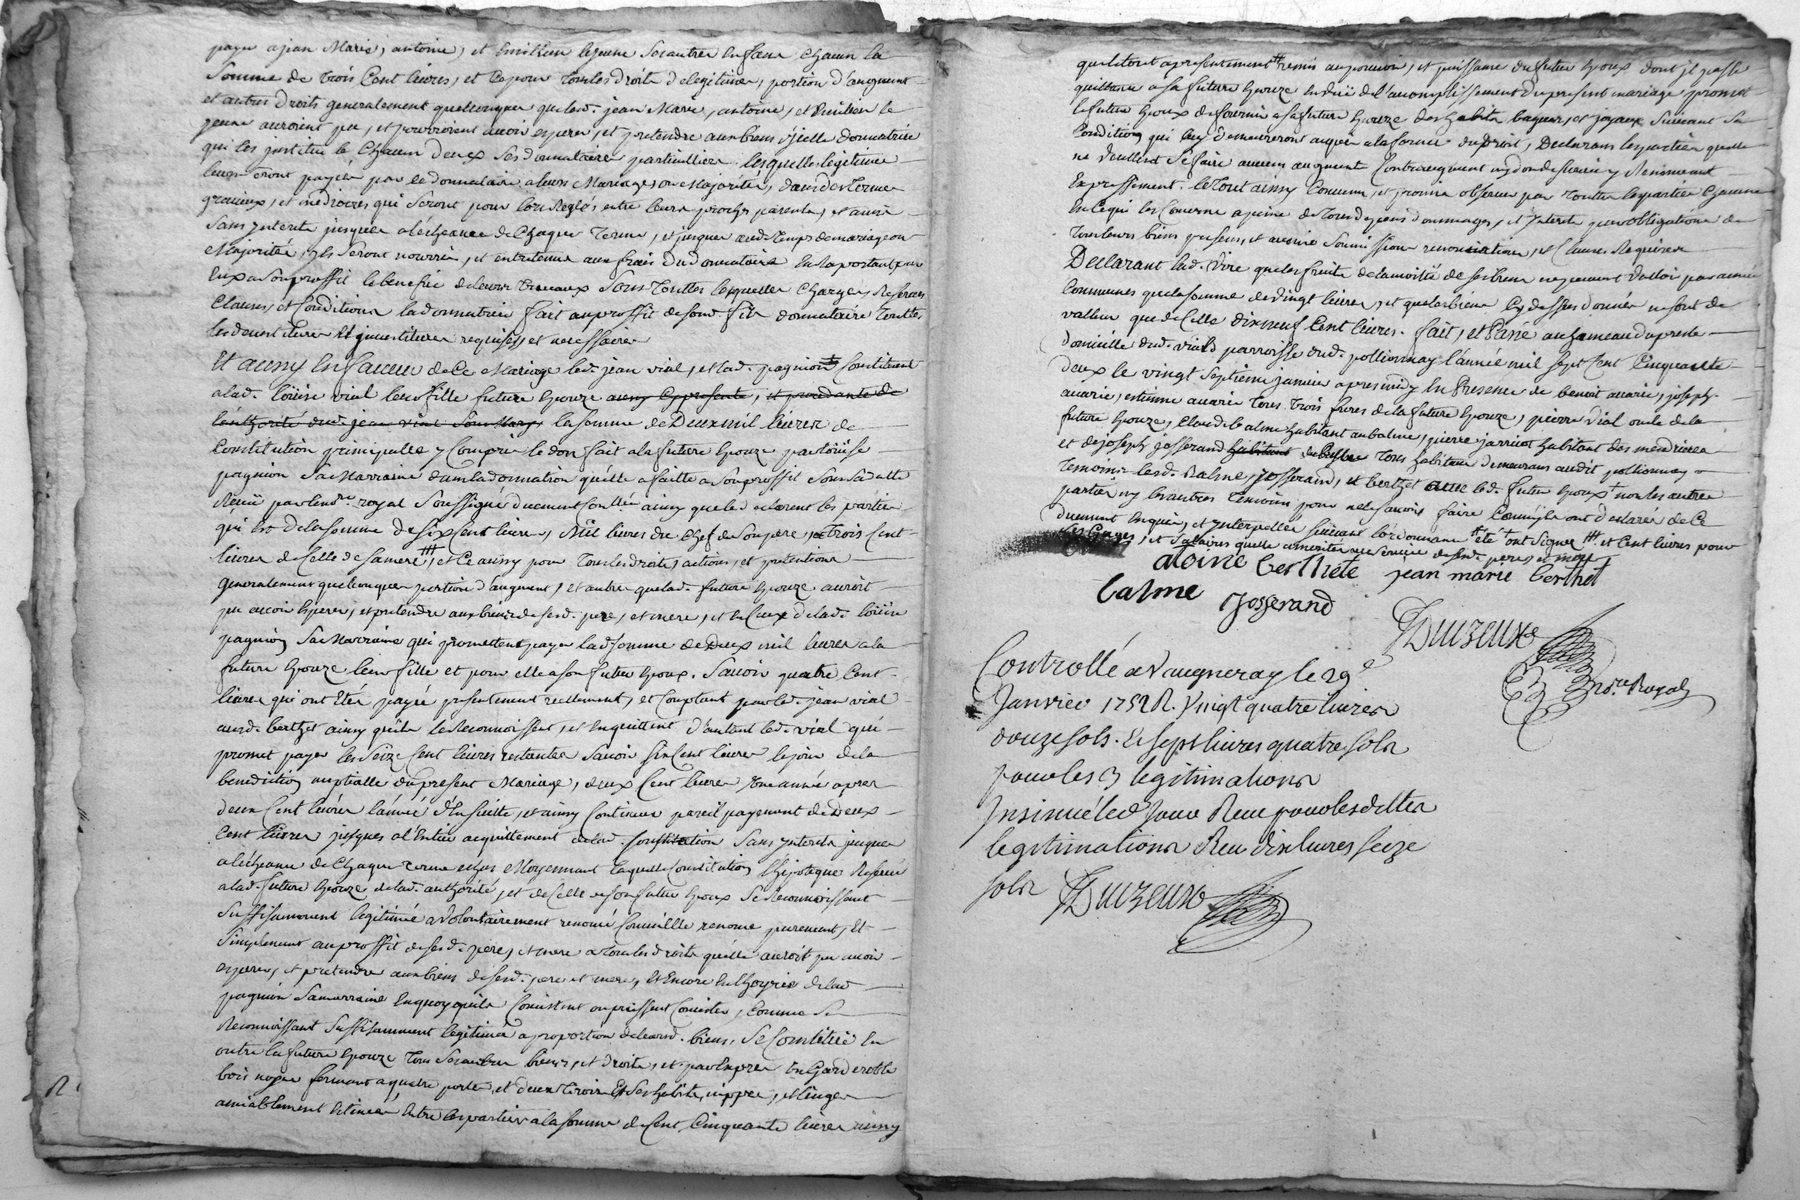 payer a jean Marie, antoine, et Emilien lejeune ses autres enfans chacun la
somme de Trois Cent livres, et ce pour Tous les droits de legitime, portion d'augment
et autres droits generalement quelconques que lesd. jean Marie, antoine, et Emilien le
jeune auroient pu, et pourroient avoir esperer, et pretendre aux biens d'icelle donnatrice
qui les institue le Chacun d'eux ses donnataires particulliers lesquelles legitimes
leurs seront payées par le donnataire a leurs Mariages ou Majorités, dans des Termes
gracieux, et mediocres qui seront pour lors reglés entre leurs proches parents, et amis
sans interets jusques a l'echeance de Chaque Terme, et jusques aud. Temps de mariage ou
Majorité, ils seront nourris, et entretenus aux frais du donnataire en rapportant par
eux a son proffit le benefice de leurs Travaux sous Touttes lesquelles Charges, Reserves
Clauses, et Conditions la donnatrice fait au proffit de sond. fils donnataire Touttes
les devestitures et investitures requises, et necessaires
Et ainsy En faveur de Ce Mariage led. jean vial, et lad. pagnion Constituent
a lad. Loüise vial leur fille future Epouze
la somme de Deux mil livres de
Constitution principalle y Compris le don fait a la future Epouze par Loüise
pagnion sa Marraine dans la donnation qu'elle a faitte a son proffit sous sa datte
Receu par le no.re royal Soussigné duement Conllée ainsy que le declarent les parties
qui est de la somme de six Cent livres, Mil livres du Chef de son pere, et Trois Cent
livres de Celle de sa mere, et Ce ainsy pour Tous les droits, actions, et pretentions
Generalement quelconques portion d'augment, et autre que lad. future Epouze auroit
pu avoir esperer, et pretendre aux biens de sesd. pere, et mere, et en Ceux de lad. Loüise
pagnion sa Marraine qui promettent payer lad. somme de Deux mil livres a la
future Epouze leur fille et pour elle a son futur Epoux. Savoir quatre Cent
livres qui ont Eté payée presentement reellement, et Comptant par led. jean vial
aud. berthet ainsy qu'ils le Reconnoissent, et En quittent d'autant led. vial qui
promet payer les seize Cent livres restantes Savoir six Cent livres le jour de la
benediction nuptialle du present Mariage, deux Cent livres d'une année apres
deux Cent livres l'année d'Ensuitte, et ainsy Continuer pareil payement de Deux
Cent livres jusques a l'Entier acquittement de lad. Constitution sans interets jusques
a l'echeance de Chaque Terme Moyennant laquelle Constitution l'hipoteque Reservé
a lad. future Epouze de lad. authorité, et de Celle de son futur Epoux se Reconnoissant
suffisamment legitimée a volontairement renoncé Comme elle renonce purement, Et
Simplement au proffit de sesd. pere, et mere a Tous les droits qu'elle auroit pu avoir
esperer, et pretendre aux biens de sesd. pere et mere, Et Encore en l'hoyrie de lad.
pagnion sa marraine En quoy qu'ils Consistent ou puissent Consister, Comme se
Reconnoissant suffisamment legitimée a proportion de leursd. biens, se Constitue en
outre la future Epouze Tous ses autres biens, et droits, et par Exprès Un Garderobbe
bois noyer fermant a quatre portes, et deux Tiroirs Et ses habits, nippes, et linges
amiablement Estimés Entre les parties a la somme de Cent Cinquante livres ainsy
qu'ils l'ont apresentement remis au pouvoir, et puissance du futur Epoux dont il passe
quittance a sa future Epouze En duë de l'accomplissement du present mariage promet
le futur Epoux de fournir a sa future Epouze des habits, bagues, et joyaux Suivant sa
Condition qui luy demeureront acquis a la forme du droit, Declarans les parties qu'elles
ne Veullent se faire aucun augment Contraugment ny don de survie y Renoncant
Expressement. le Tout ainsy Convenu, et promis observer par Touttes les parties Chacune
En Ce qui les Concerne a peine de Tous depens dommages, et Interets par obligations de
Tous leurs biens presens, et avenir Soumissions renonciations, et Clauses Requises
Declarant lad. Vve que les fruits de la moitié de ses biens ne peuvent Valloir par année
Communes que la somme de Vingt livres, et que les biens Cy dessus donnés ne sont de
valleur que de Celle dix neuf Cent livres. fait, et Passé au hameau du presle
domicille dud. vial parroisse dud. pollionnay l'année mil sept Cent Cinquante
deux le vingt Septieme janvier apres midy En Presence de benoit avarie, joseph
avarie, estienne avarie Tous Trois freres de la future Epouze, pierre vial oncle de la
future Epouze, Claude balme habitant au balme, pierre jarricot habitant des meurieres
et de joseph josserand Tous habitans demeurans audit pollionnay
Temoins lesd. Balme, josserand, et berthet avec led. futur Epoux non les autres
parties ny les autres Temoins pour ne le sçavoir faire Comme ils ont declarés de Ce
duement Enquis, et Interpellés suivant l'ordonnance été ont signé et Cent livres pour
les Gages, et Salaires qu'elle a merités au service de sesd. pere, et mere
atoine berthete jean marie berthet
balme Josserand
Duizeux
no.re Royal
Controllé a Vaugneray le 29e
Janvier 1752 R. Vingt quatre livres
douze sols. Et sept livres quatre sols
pour les 3 legitimations
Insinué led Jour Receu pour lesdittes
legitimations Receu dix livres seize
sols Duizeux